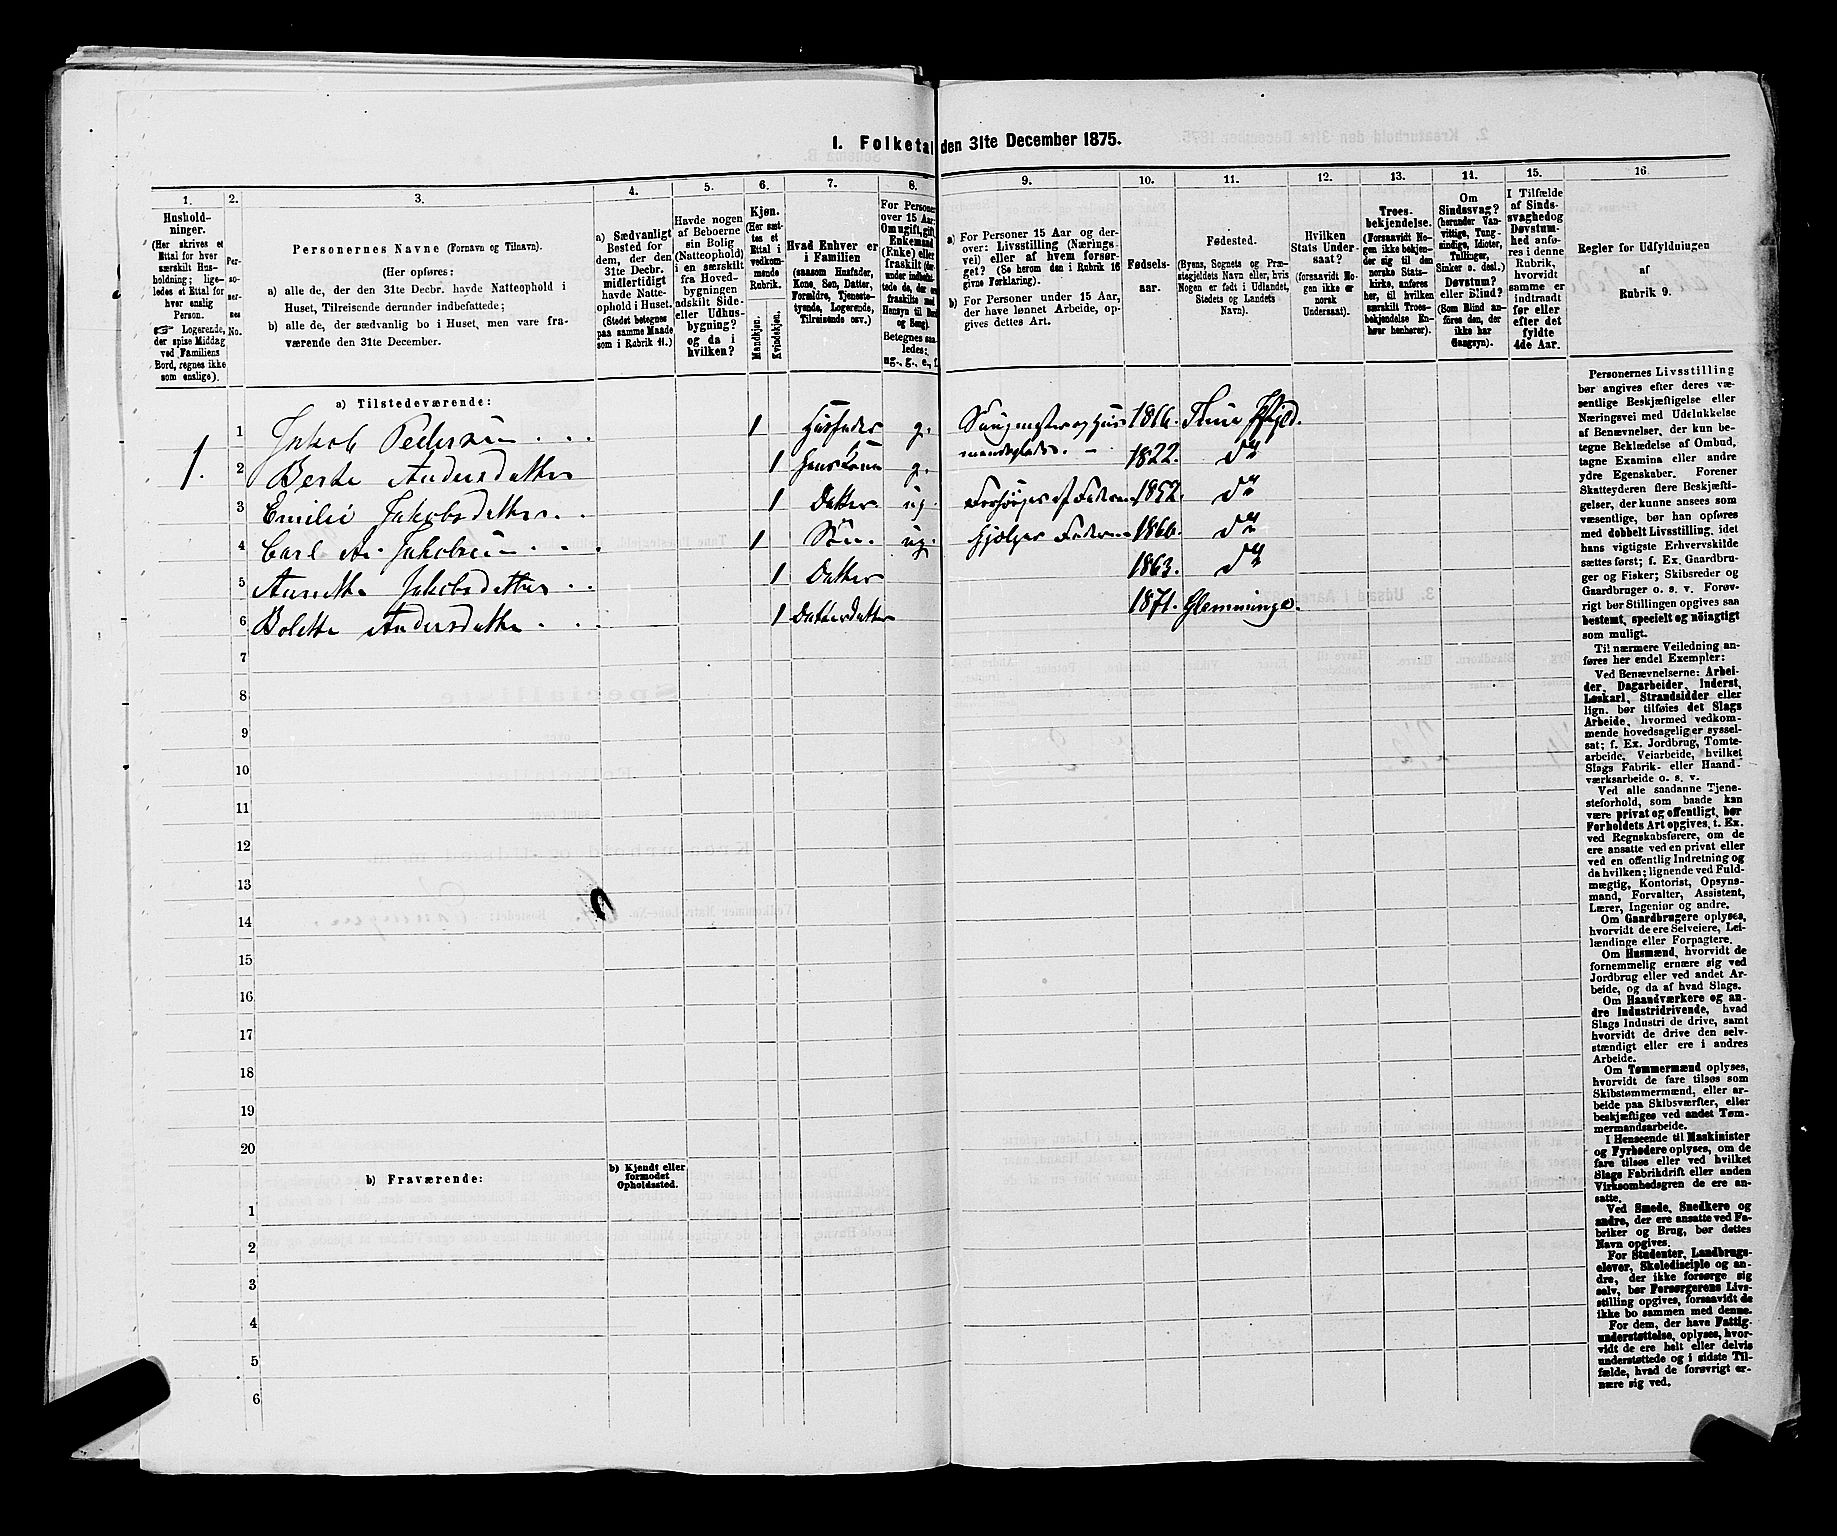 1. Folketal den 31te December 1875.
1. 2. 3. 4. 5. 6. 7. 8. 9. 10. 11. 12. 13. 14. 15. 16.
Hushold-
ninger.
(Her skrives et
Ettal for hver
særskilt Hus-
holdning; lige-
ledes et Ettal for
hver enslig
Person.
☞ Logerende,
der spise Middag
ved Familiens
Bord, regnes ikke
som enslige).
Per-
so-
ner-
nes
No.
Personernes Navne (Fornavn og Tilnavn).
(Her opføres:
a) alle de, der den 31te Decbr. havde Natteophold i
Huset, Tilreisende derunder indbefattede;
b) alle de, der sædvanlig bo i Huset, men vare fra-
værende den 31te December.
a) Sædvanligt
Bosted for
dem, der den
31te Decbr.
midlertidigt
havde Natte-
ophold i Huset.
(Stedet betegnes
paa samme Maade
som i Rubrik 11.)
Havde nogen
af Beboerne
sin Bolig
(Natteophold)
i en særskilt
fra Hoved-
bygningen
adskilt Side-
eller Udhus-
bygning?
og da i
hvilken?
Kjøn.
(Her sæt-
tes et
Ettal i
vedkom-
mende
Rubrik.
Mandkjøn.
Kvindekjøn.
Hvad Enhver er
i Familien
(saasom Husfader,
Kone, Søn, Datter,
Forældre, Tjeneste-
tyende, Logerende,
Tilreisende osv.)
For Personer
over 15 Aar:
Om ugift, gift,
Enkemand
(Enke) eller
fraskilt
Betegnes saa-
ledes:
ug., g., e., f.
a) For Personer 15 Aar og der-
over: Livsstilling (Nærings-
vei) eller af hvem forsør-
get? (Se herom den i Rubrik 16
givne Forklaring).
b) For Personer under 15 Aar,
der have lønnet Arbeide, op-
gives dettes Art.
Fødsels-
aar.
Fødested.
(Byens, Sognets og Præ-
stegjeldets Navn eller, hvis
Nogen er født i Udlandet,
Stedets og Landets
Navn).
Hvilken
Stats Under-
saat?
(forsaavidt No-
gen ikke er
norsk
Undersaat).
Troes-
bekjendelse.
(Forsaavidt No-
gen ikke bekjen-
der sig til den
norske Stats-
kirke, anføres
her, til hvilken
særskilt Troes-
bekjendelse En-
hver henhører).
Om
Sindssvag?
(herunder Van-
vittige, Tung-
sindige, Idioter,
Tullinger,
Sinker o. desl.)
Døvstum?
eller Blind?
(Som Blind an-
føres den, der
ikke har
Gangsyn).
I Tilfælde
af Sinds-
svaghed og
Døvstum-
hed anfø-
res i denne
Rubrik,
hvorvidt
samme er
indtraadt
før eller
efter det
fyldte
4de Aar.
Regler for Udfyldningen
af
Rubrik 9.
a) Tilstedeværende:
1. 1 Jakob Pedersen 1 Husfader g. 1866. Thune Pgjld.
2 Berte Andersdatter 1 g. 1822. do
3 Emilie Jakobsdatter 1 Datter ug. Forsørges af Faderen 1852. do
4 Carl A. Jakobsen 1 Søn ug. hjælper Faderen 1866. do
5 Annette Jakobsdatter 1 Datter 1863. do
6 Bolette Andersdatter 1 Datterdatter 1871. Glemminge.
7
8
9
10
11
12
13
14
15
16
17
18
19
20
b) Fraværende:
b) Kjendt eller
formodet
Opholdssted.
1
2
3
4
5
6
Personernes Livsstilling
bør angives efter deres væ-
sentlige Beskjæftigelse eller
Næringsvei med Udelukkelse
af Benævnelser, der kun be-
tegne Beklædelse af Ombud,
tagne Examina eller andre
ydre Egenskaber. Forener
Skatteyderen flere Beskjæfti-
gelser, der kunne ansees som
væsentlige, bør han opføres
med dobbelt Livsstilling, idet
hans vigtigste Erhvervskilde
sættes først; f. Ex. Gaardbru-
ger og Fisker; Skibsreder og
Gaardbruger o. s. v. Forøv-
rigt bør Stillingen opgives saa
bestemt, specielt og nøiagtigt
som muligt.
Til nærmere Veiledning an-
føres her endel Exempler:
Ved Benævnelserne: Arbei-
der, Dagarbeider, Inderst,
Løskarl, Strandsidder eller
lign. bør tilføies det Slags
Arbeide, hvormed vedkom-
mende hovedsagelig er syssel-
sat; f. Ex. Jordbrug, Tomte-
arbeide, Veiarbeide, hvilket
Slags Fabrik- eller Haand-
værksarbeide o. s. v.
Ved alle saadanne Tjene-
steforhold, som baade kan
være privat og offentligt, bør
Forholdets Art opgives, t. Ex.
ved Regnskabsførere, om de
ere ansatte ved en privat eller
ved en offentlig Indretning og
da hvilken; lignende ved Fuld-
mægtig, Kontorist, Opsyns-
mand, Forvalter, Assistent,
Lærer, Ingeniør og andre.
Om Gaardbrugere oplyses,
hvorvidt de ere Selveiere, Lei-
lændinge eller Forpagtere.
Om Husmænd, hvorvidt de
fornemmelig ernære sig ved
Jordbrug eller ved andet Ar-
beide, og da af hvad Slags.
Om Haandværkere og an-
dre Industridrivende, hvad
Slags Industri de drive, samt
hvorvidt de drive den selv-
stændigt eller ere i andres
Arbeide.
Om Tømmermænd oplyses,
hvorvidt de fare tilsøs som
Skibstømmermænd, eller ar-
beide paa Skibsværfter, eller
beskjæftiges ved andet Tøm-
mermandsarbeide.
I Henseende til Maskinister
og Fyrbødere oplyses, om de
fare tilsøs eller ved hvilket
Slags Fabrikdrift eller anden
Virksomhedsgren de ere an-
satte.
Ved Smede, Snedkere og
andre, der ere ansatte ved Fa-
briker og Brug, bør dettes
Navn opgives.
For Studenter, Landbrugs-
elever, Skoledisciple og an-
dre, der ikke forsørge sig
selv, bør Forsørgerens Livs-
stilling opgives, forsaavidt de
ikke bo sammen med denne.
For dem, der have Fattig-
understøttelse, oplyses, hvor-
vidt de ere helt eller delvis
understøttede og i sidste Til-
fælde, hvad de forøvrigt er-
nære sig ved.